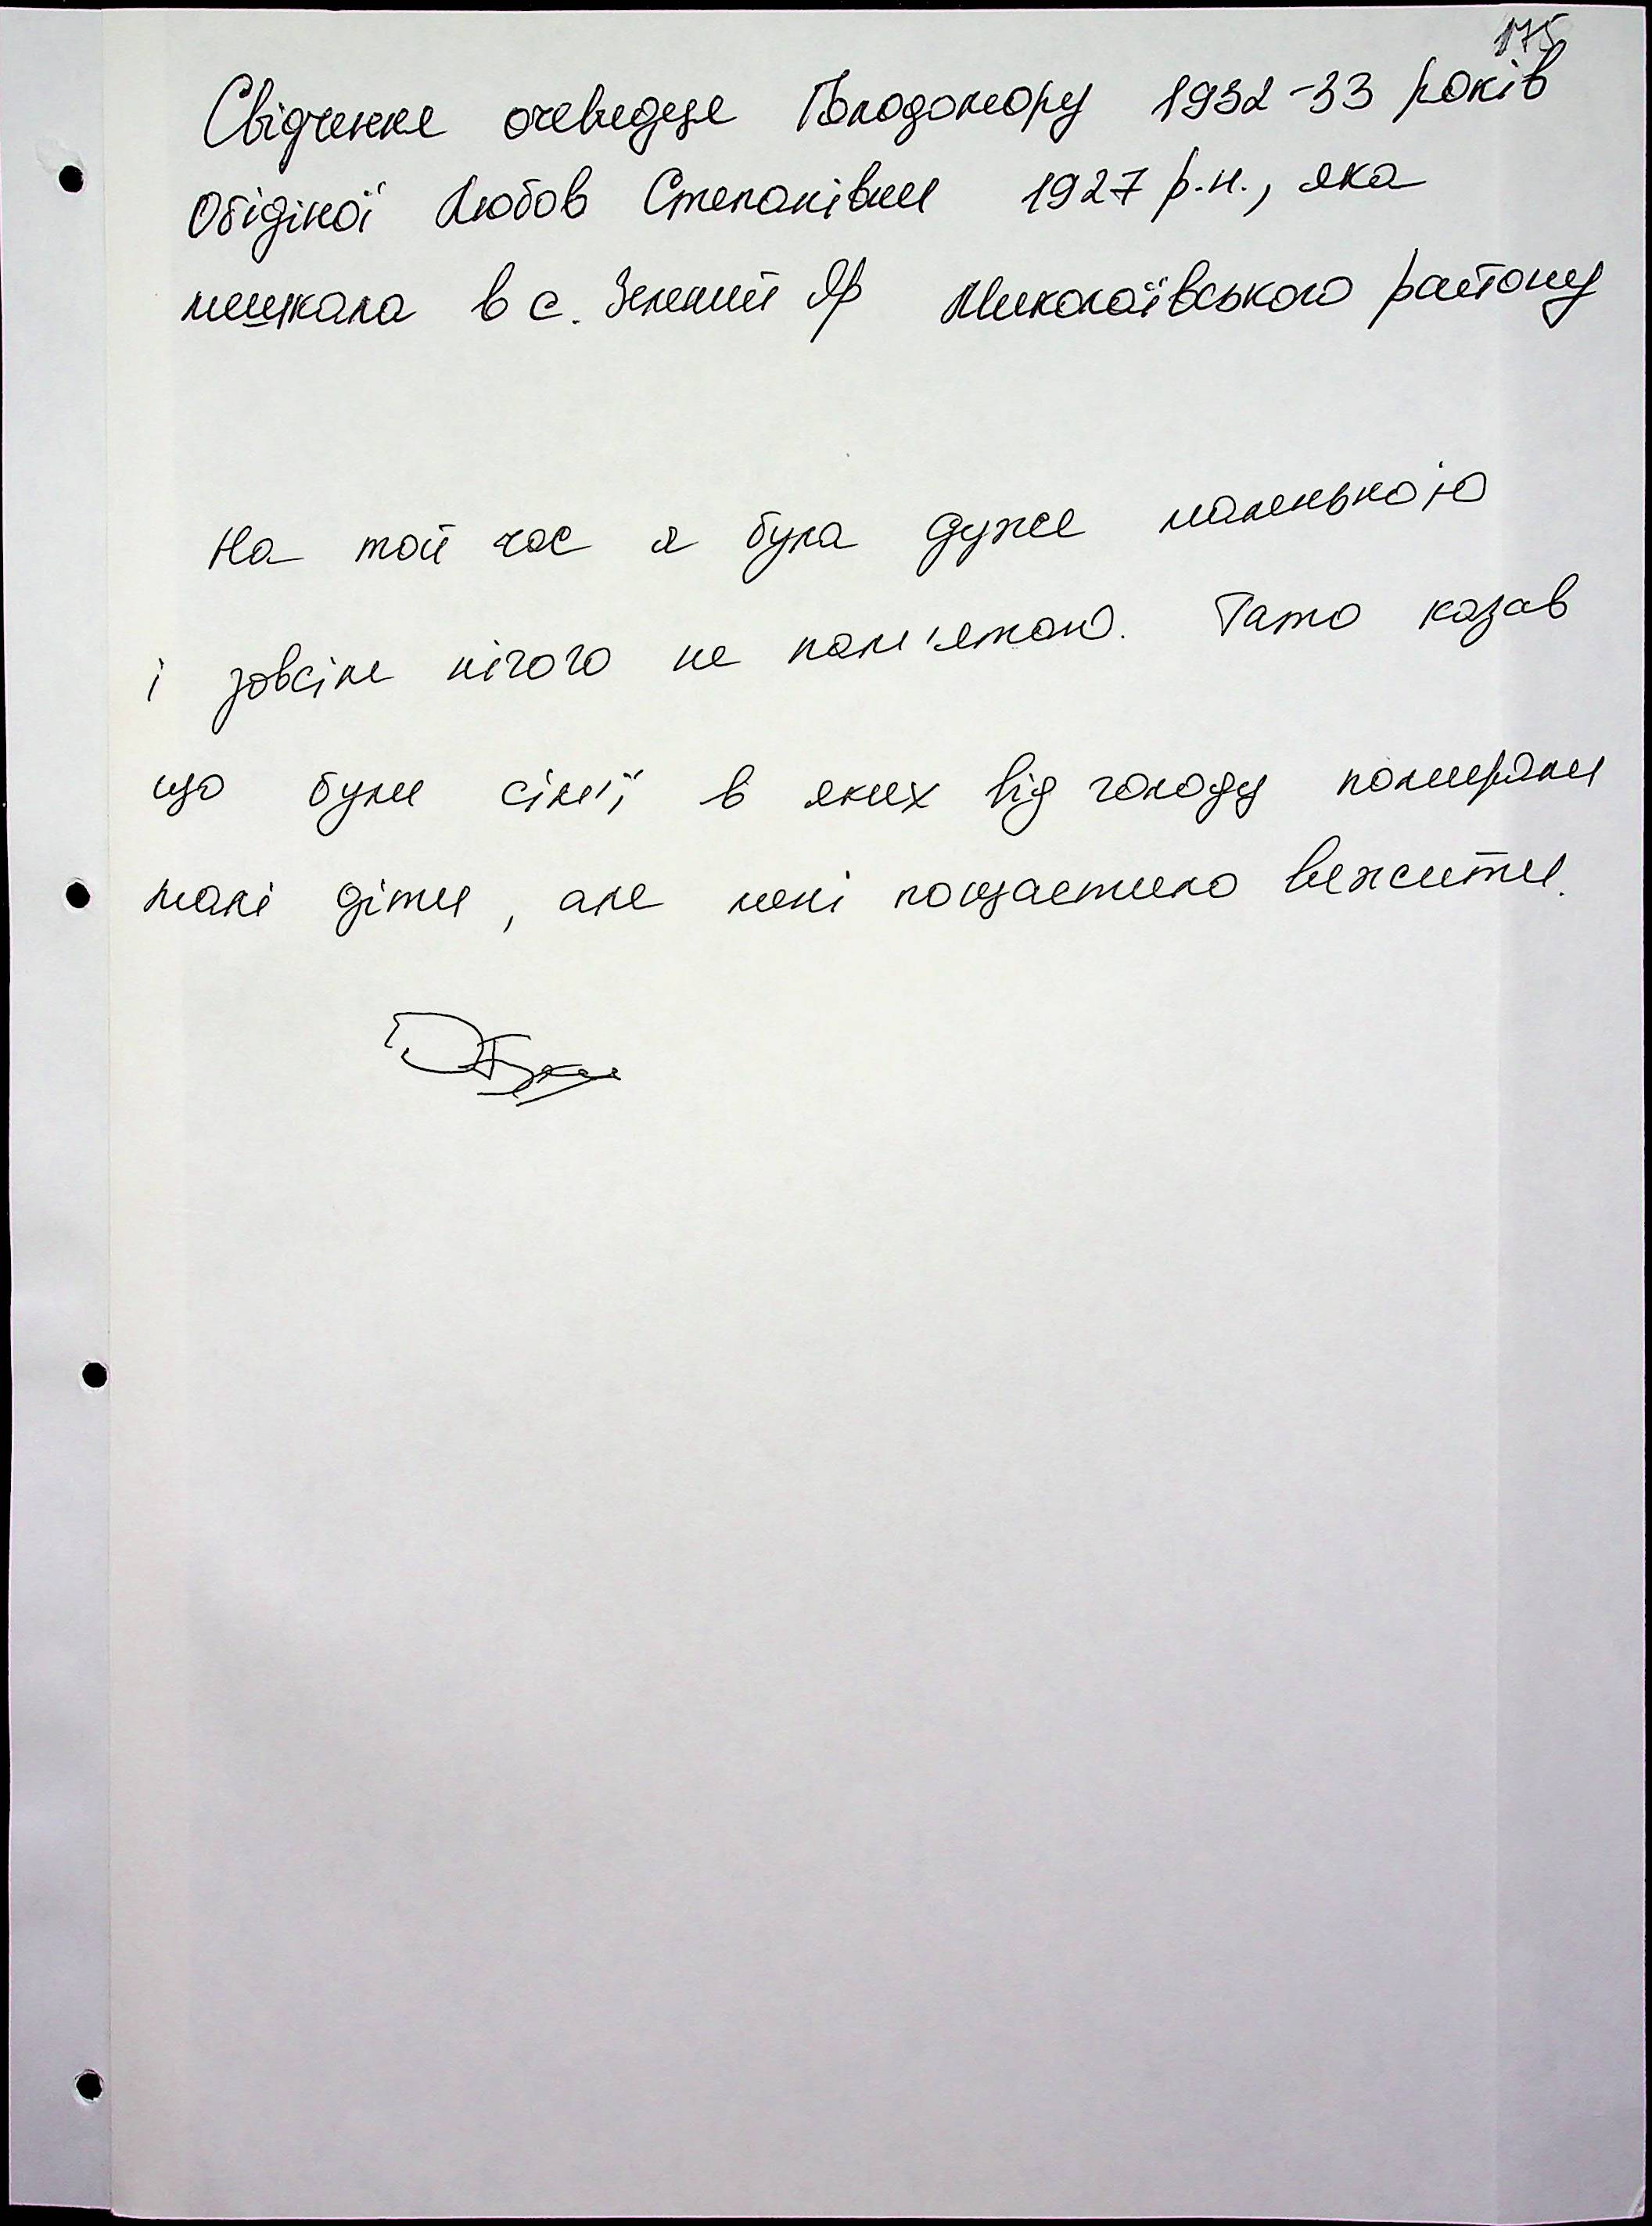 175
Свідчення очевидця Голодомору 1932-33 років
Обідіної Любов Степанівни 1927 р.н., яка
мешкала в с. Зелений Яр Миколаївського району
На той час я була дуже маленькою
і зовсім нічого не пам'ятаю. Тато казав
що були сім'ї в яких від голоду помирали
малі діти, але мені пощастило вижити.